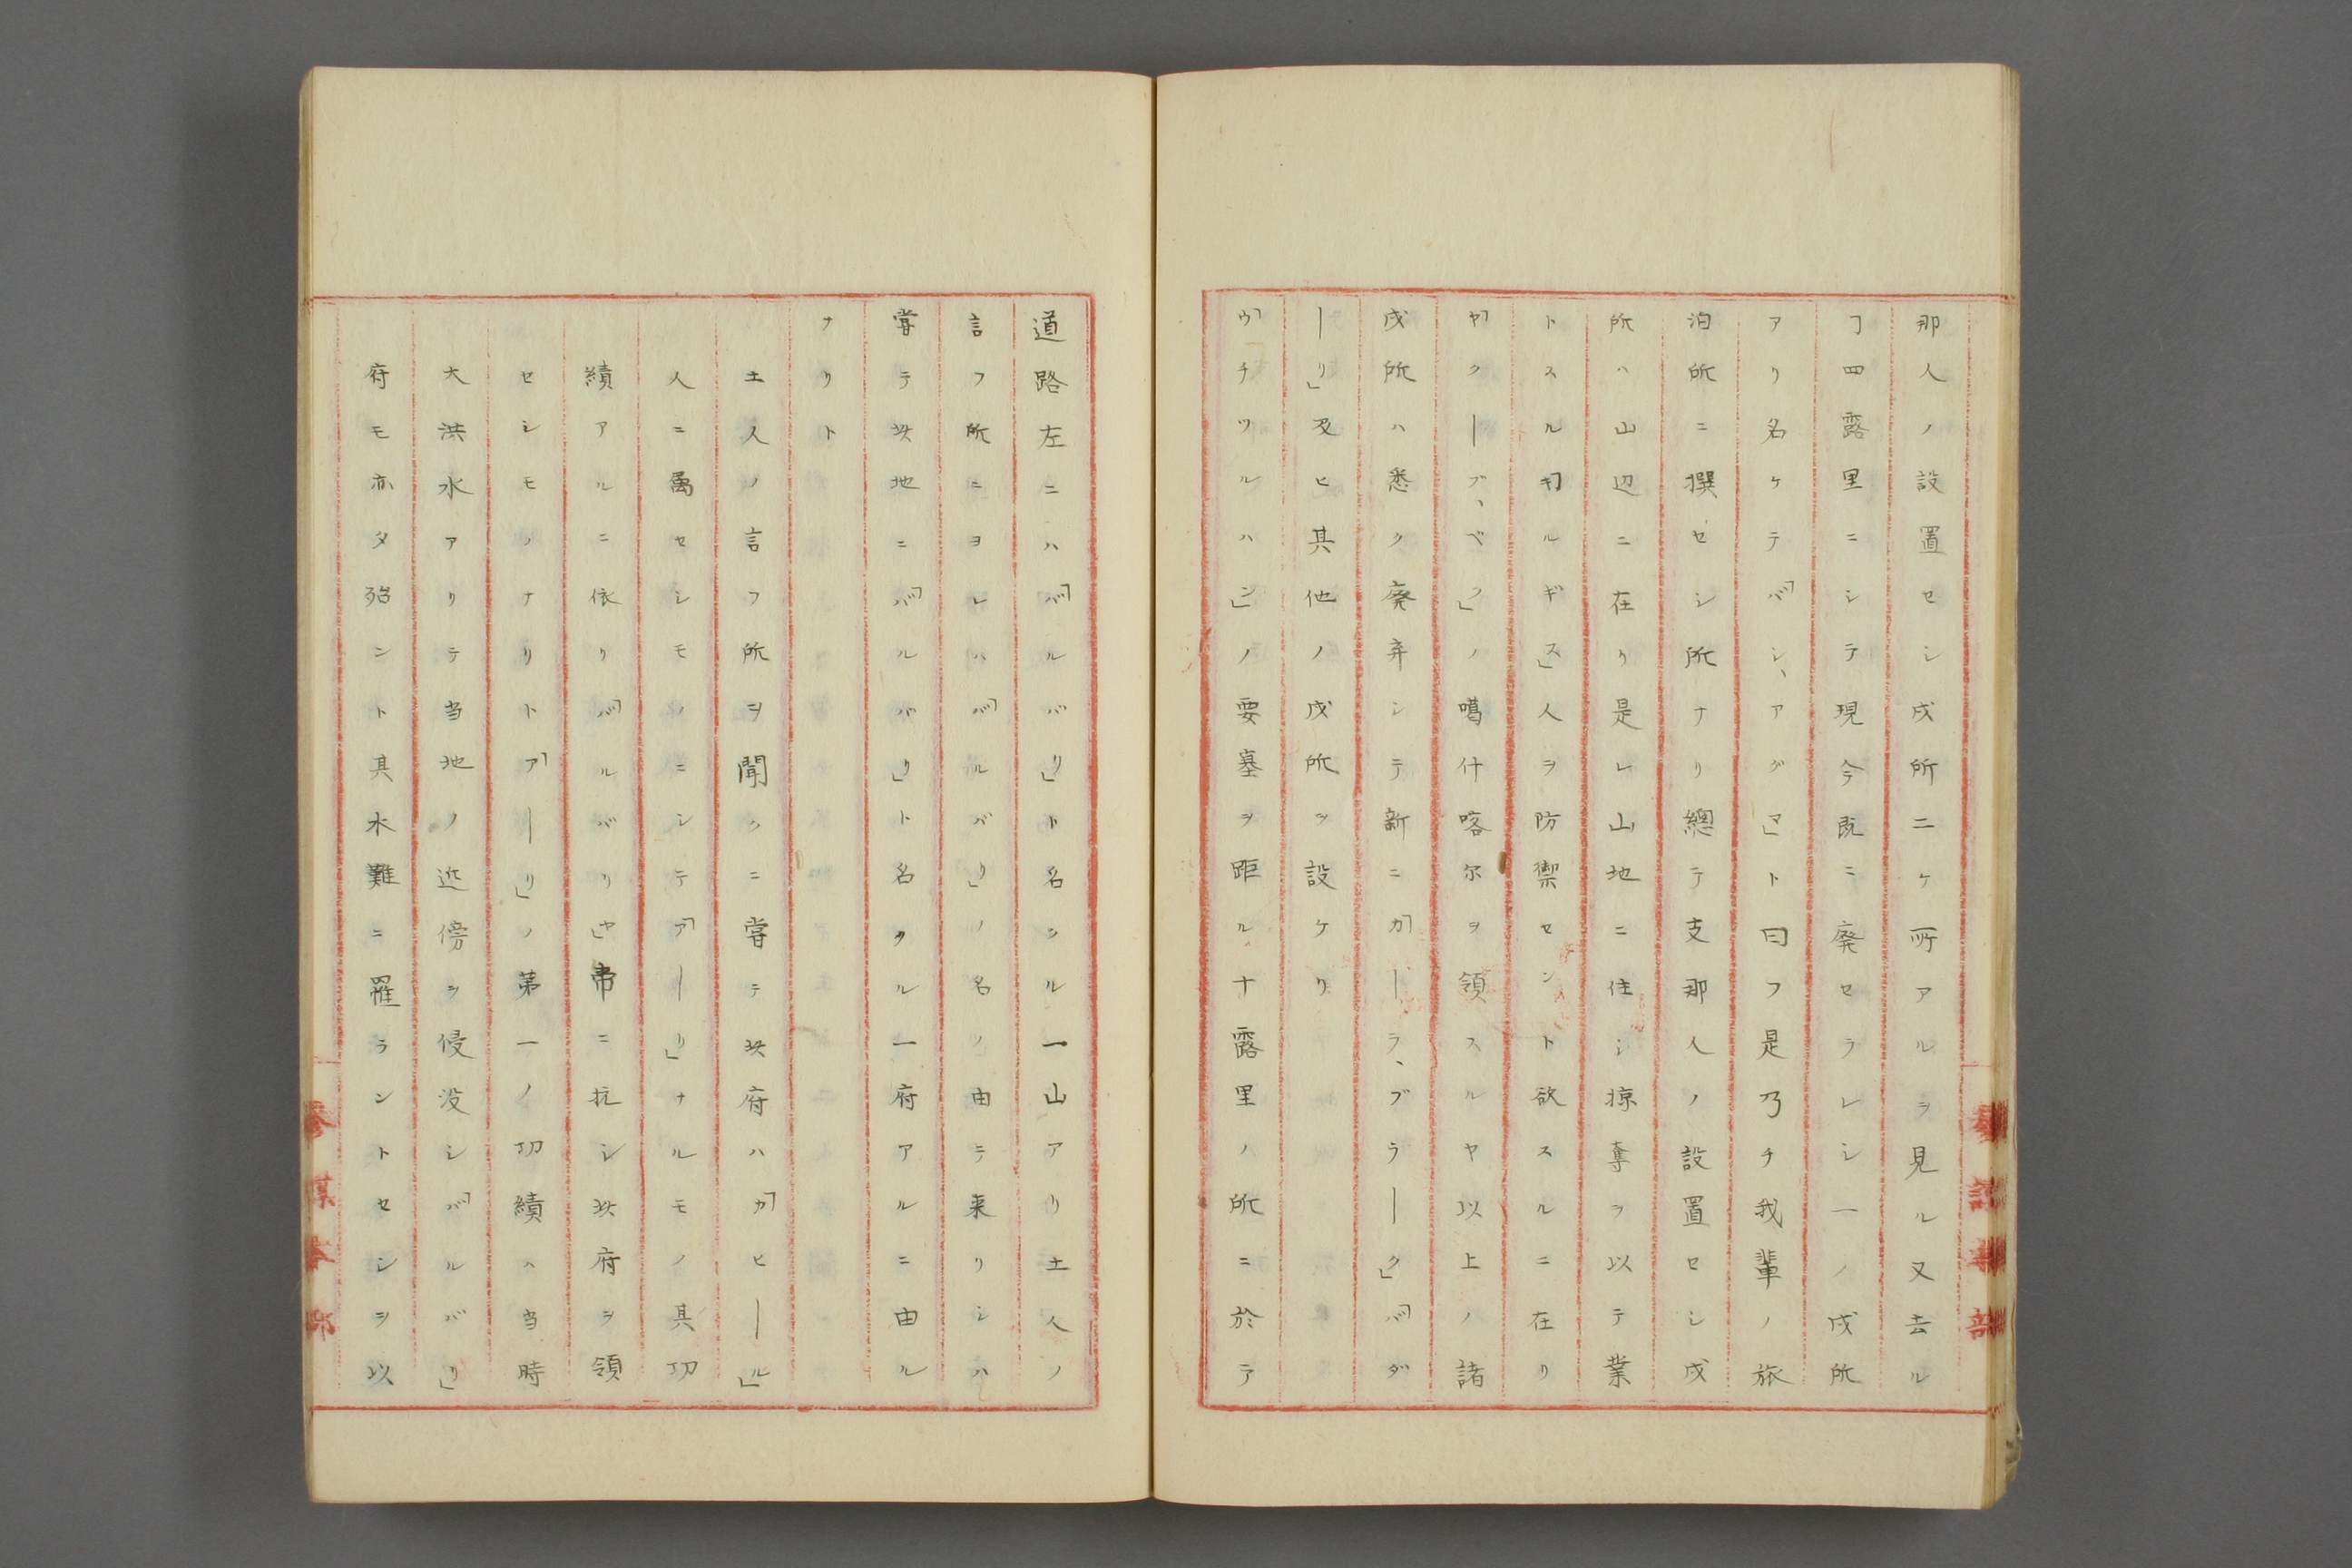 那人ノ設置セシ戍所二ケ所アルヲ見ル又去ル
ヿ四露里ニシテ現今既ニ廃セラレシ一ノ戍所
アリ名ケテ「バシ、アグマ」ト曰フ是乃チ我輩ノ旅
泊所ニ撰セシ所ナリ總テ支那人ノ設置セシ戍
所ハ山辺ニ在リ是レ山地ニ住シ掠奪ヲ以テ業
トスル「キルギス」人ヲ防禦セント欲スルニ在リ
「ヤクーブ、ベク」ノ噶什喀尔ヲ領スルヤ以上ノ諸
戍所ハ悉ク廃弃シテ新ニ「カーラ、ブラーク」「バダ
ーリ」及ヒ其他ノ戍所ヲ設ケリ
「ウチツルハン」ノ要塞ヲ距ル十露里ノ所ニ於テ
道路左ニハ「バルバリ」ト名ツル一山アリ土人ノ
言フ所ニヨレハ「バルバリ」ノ名ノ由テ来リシハ
甞テ此地ニ「バルバリ」ト名クル一府アルニ由ル
ナリト
土人ノ言フ所ヲ聞クニ甞テ此府ハ「カヒール」
人ニ属セシモノニシテ「アーリ」ナルモノ其功
績アルニ依リ「バルバリヤ」帝ニ抗シ此府ヲ領
セシモノナリト「アーリ」ノ第一ノ功績ハ当時
大洪水アリテ当地ノ近傍ヲ侵没シ「バルバリ」
府モ亦タ殆ント其水難ニ罹ラントセシヲ以
參謀本部
參謀本部